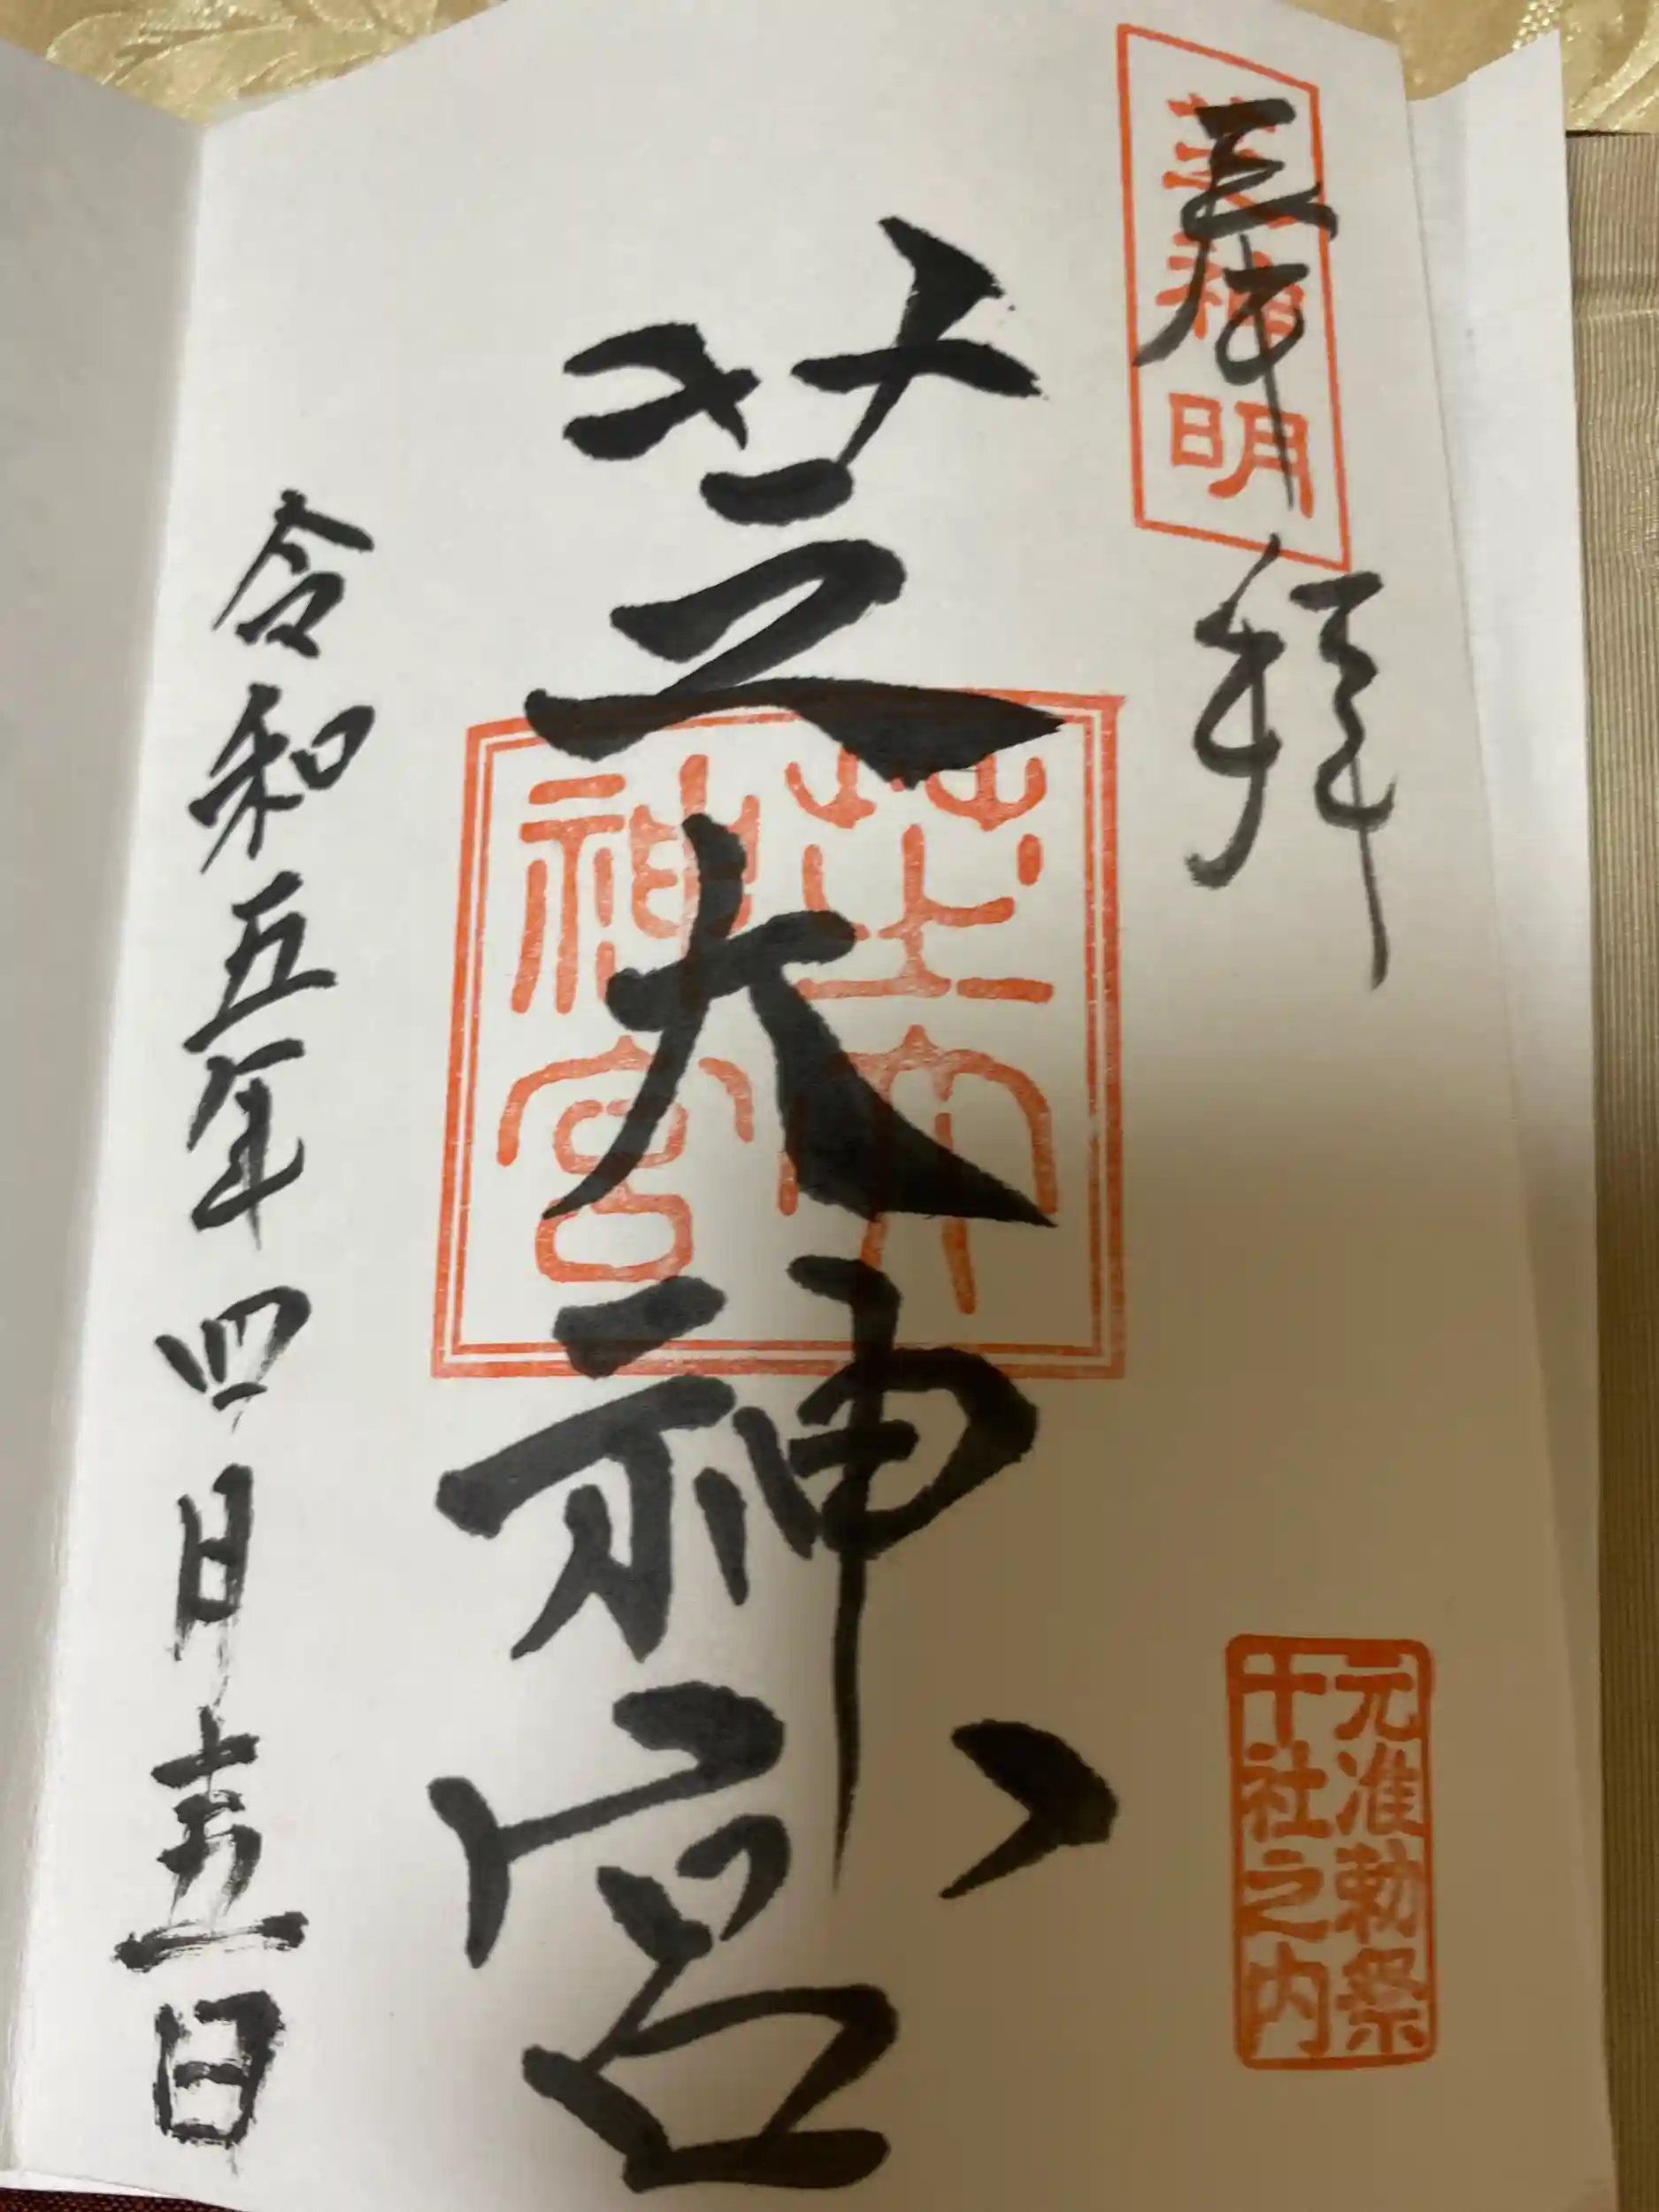 奉拝
芝神明
芝大神宮
芝大
神宮
元准勅祭
十社之内
令和五年四月十五日